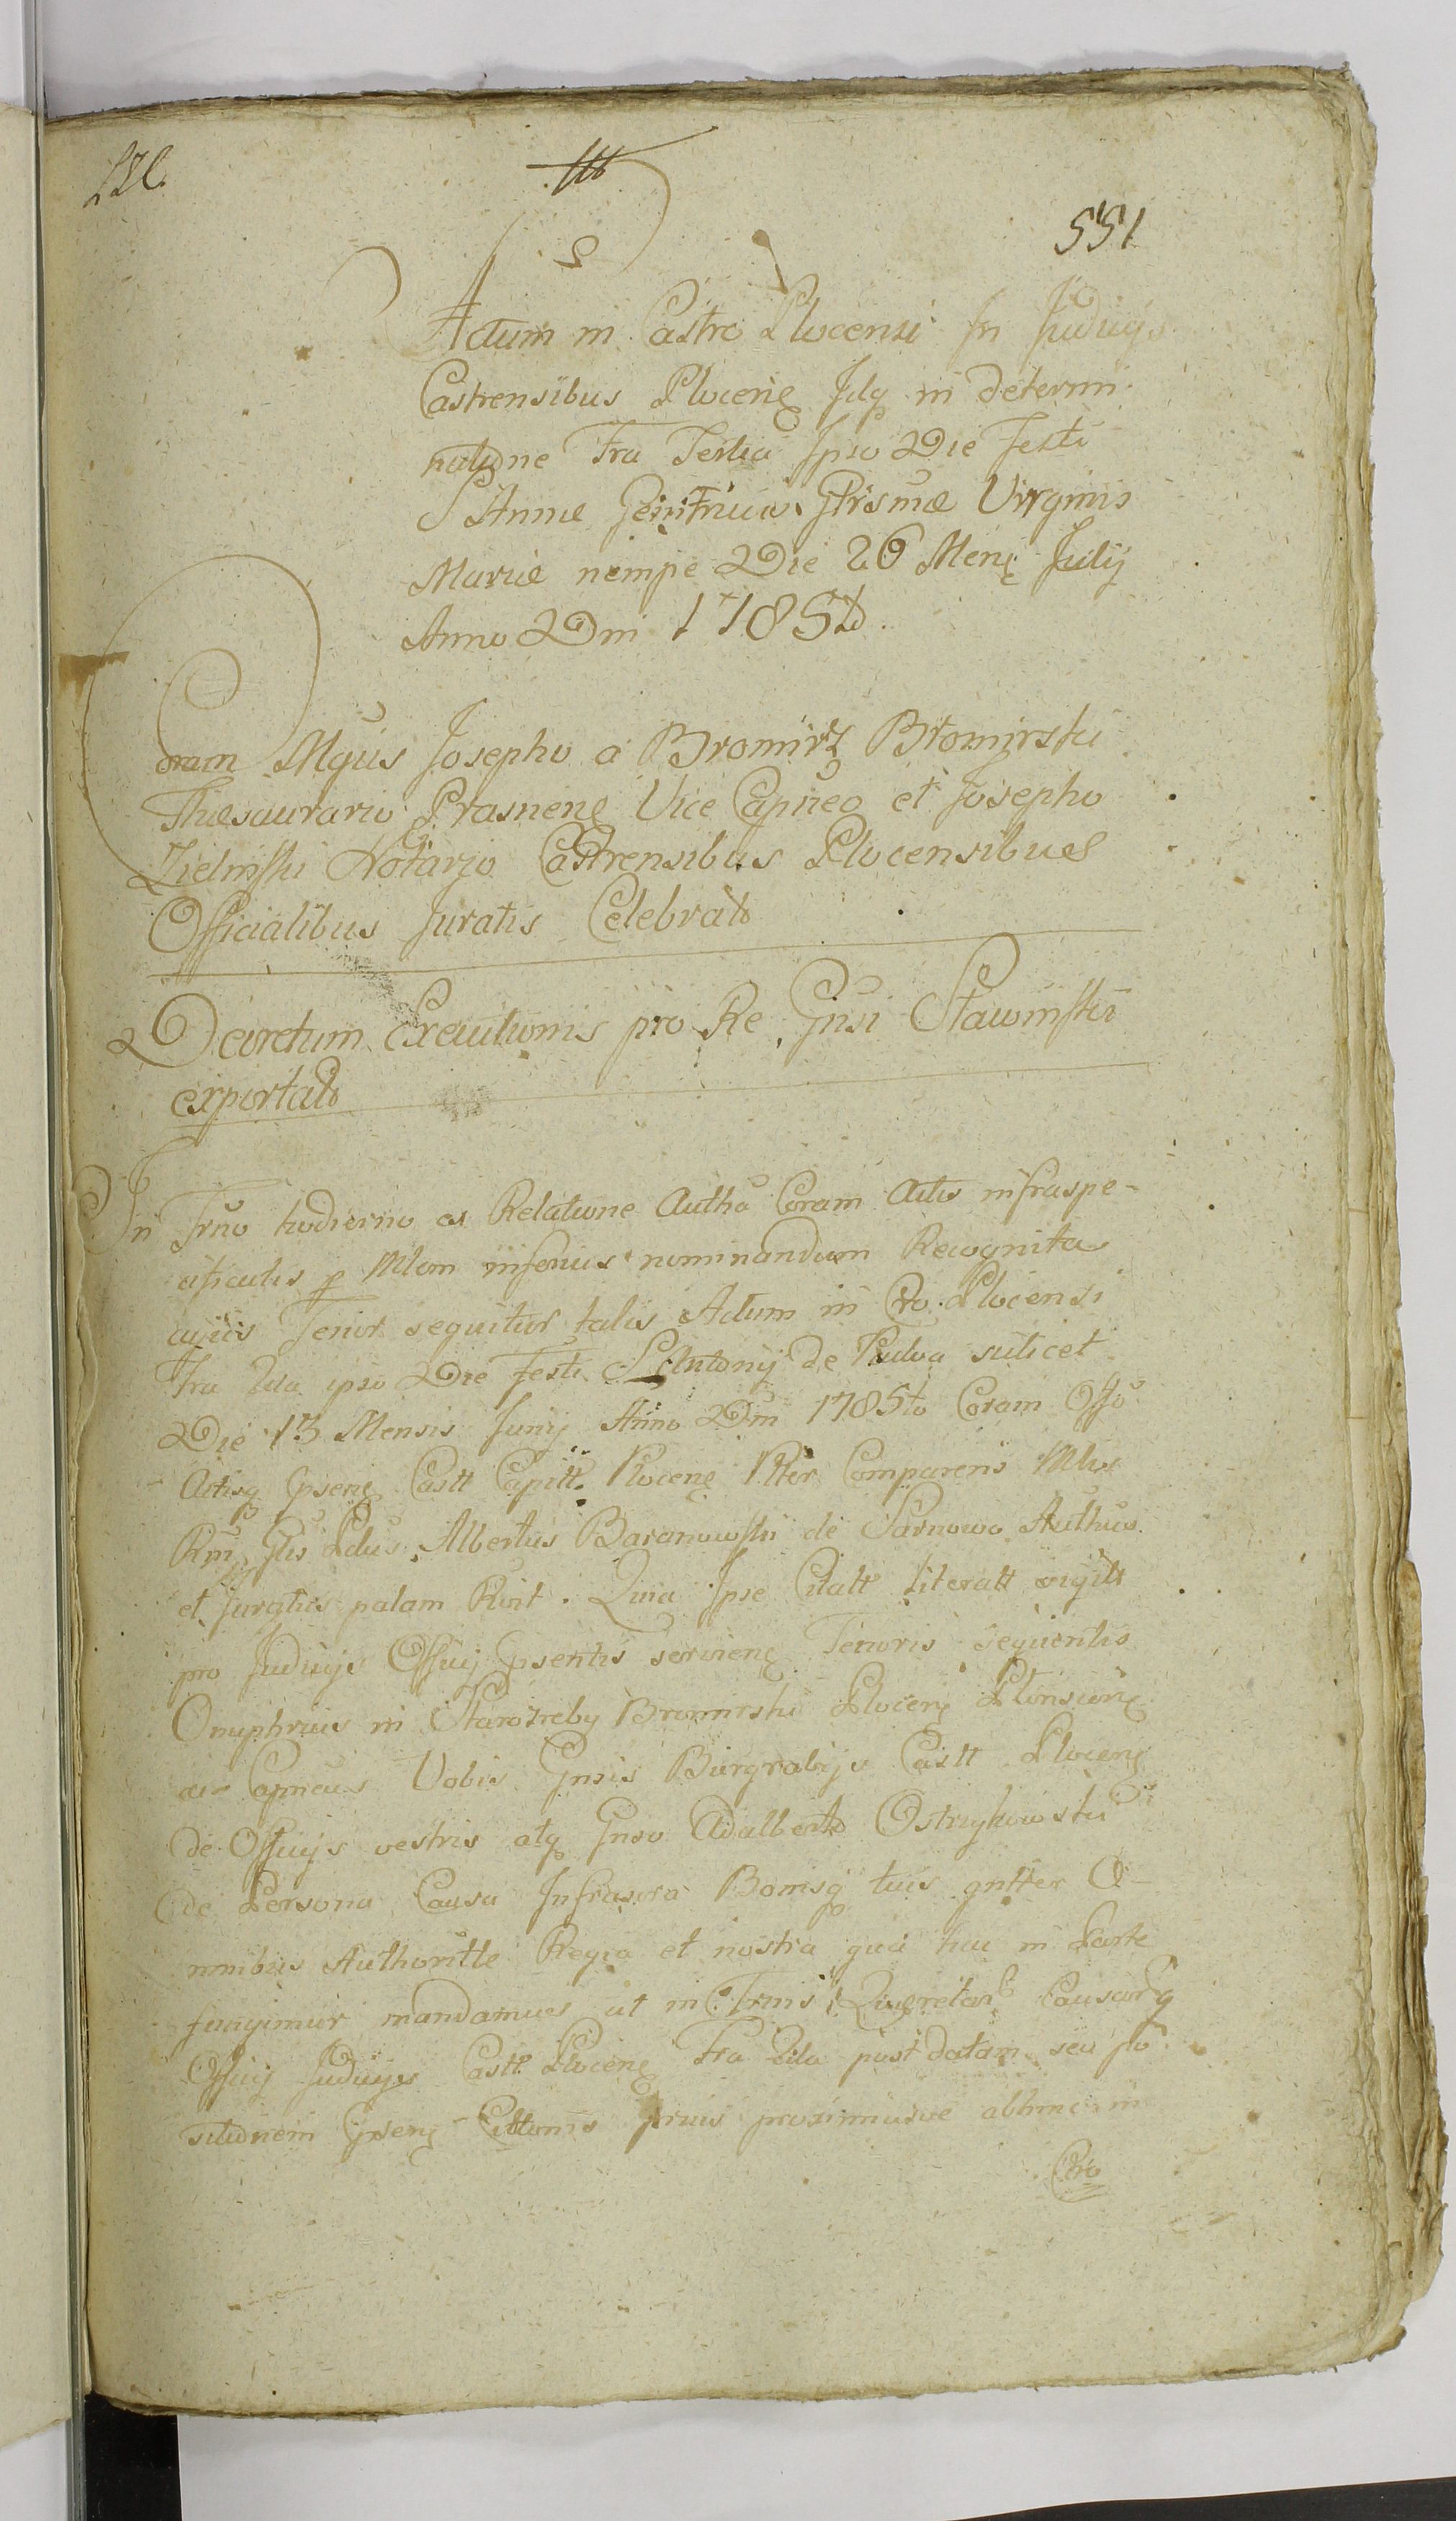 551
Actum in Castro Plocensi In Judicijs
Castrensibus Plocens Idq in determi
natione Fra Tertia Ipso Die Festi
S Annæ Genitricis Glrismæ Virginis
Mariæ nempe Die 26 Mens Julij
Anno Dni 1785to
Coram Mgcis Josepho a Bromirz Bromirski
Thesaurario Prasnens Vice Capneo et Josepho
Zielinski Notario Castrensibus Plocensibus
Officialibus Juratis Celebrato
Decretum Executionis pro Re Gnsi Sławinski
exportato
In Trno hodierno ex Relatione Autha Coram Actis infraspe-
cificatis p Mlem inferius nominandum Recognita
cujus Tenor sequitur talis Actum in Cro Plocensi
Fra 2da ipso Die Festi S Antonij de Padua scilicet
Die 13 Mensis Junij Anno Dni 1785to Coram Offo
Actisq Gpsens Castt Capitt Plocens Plter Comparens Mlis
Rni Glis Pdus Albertus Baranowski de Sarnowo Authus
et Juratus palam Rvit. Quia Ipse Citatt Literatt origitt
pro Judicijs Officij Gpsentis serviens Tenoris sequentis
Onuphrius in Starozreby Bromirski Plocens Plonscens
as Capneus Vobis Gnsis Burgrabijs Castt Plocens
de Officijs vestris atq Gnso Adalberto Ostrzykowski
de Persona Causa Infrascra Bonisq tuis gntter O-
mnibus Authoritte Regia et nostra qua hac in Parte
fungimur mandamus ut in Trnis Querelarb Causarq
Officij Judicijs Castt Plocens Fra 2da post datam seu po
sitionem Gpsens Cittonis prius proximusve abhinc in
Cro